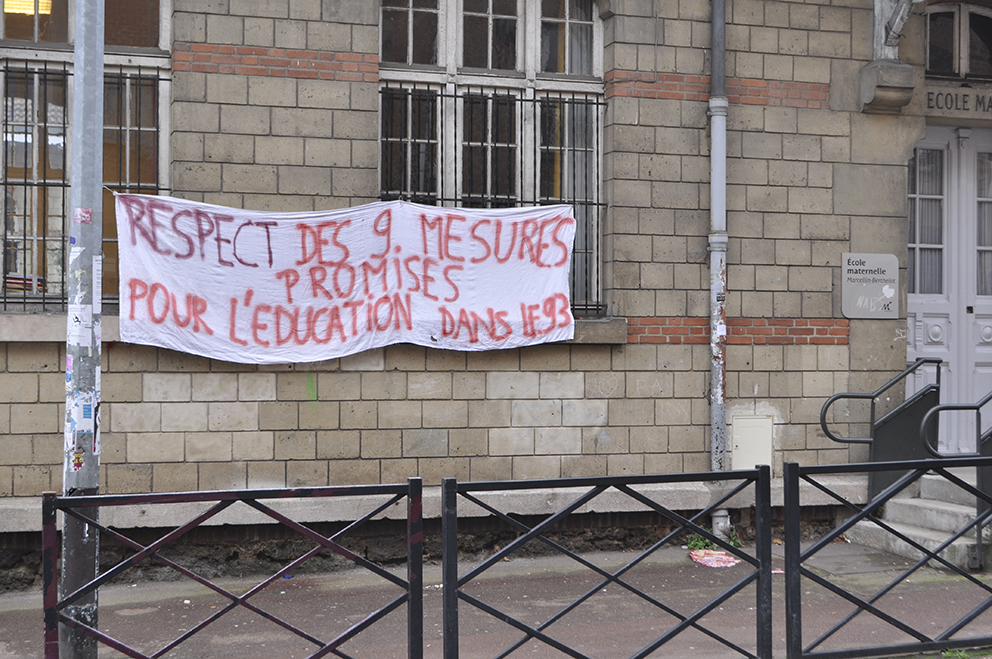 RESPECT DES 9. MESURES
PROMISES
POUR L'EDUCATION DANS LE 93
ECOLE MA
École
maternelle
Marcelin-Berthelot